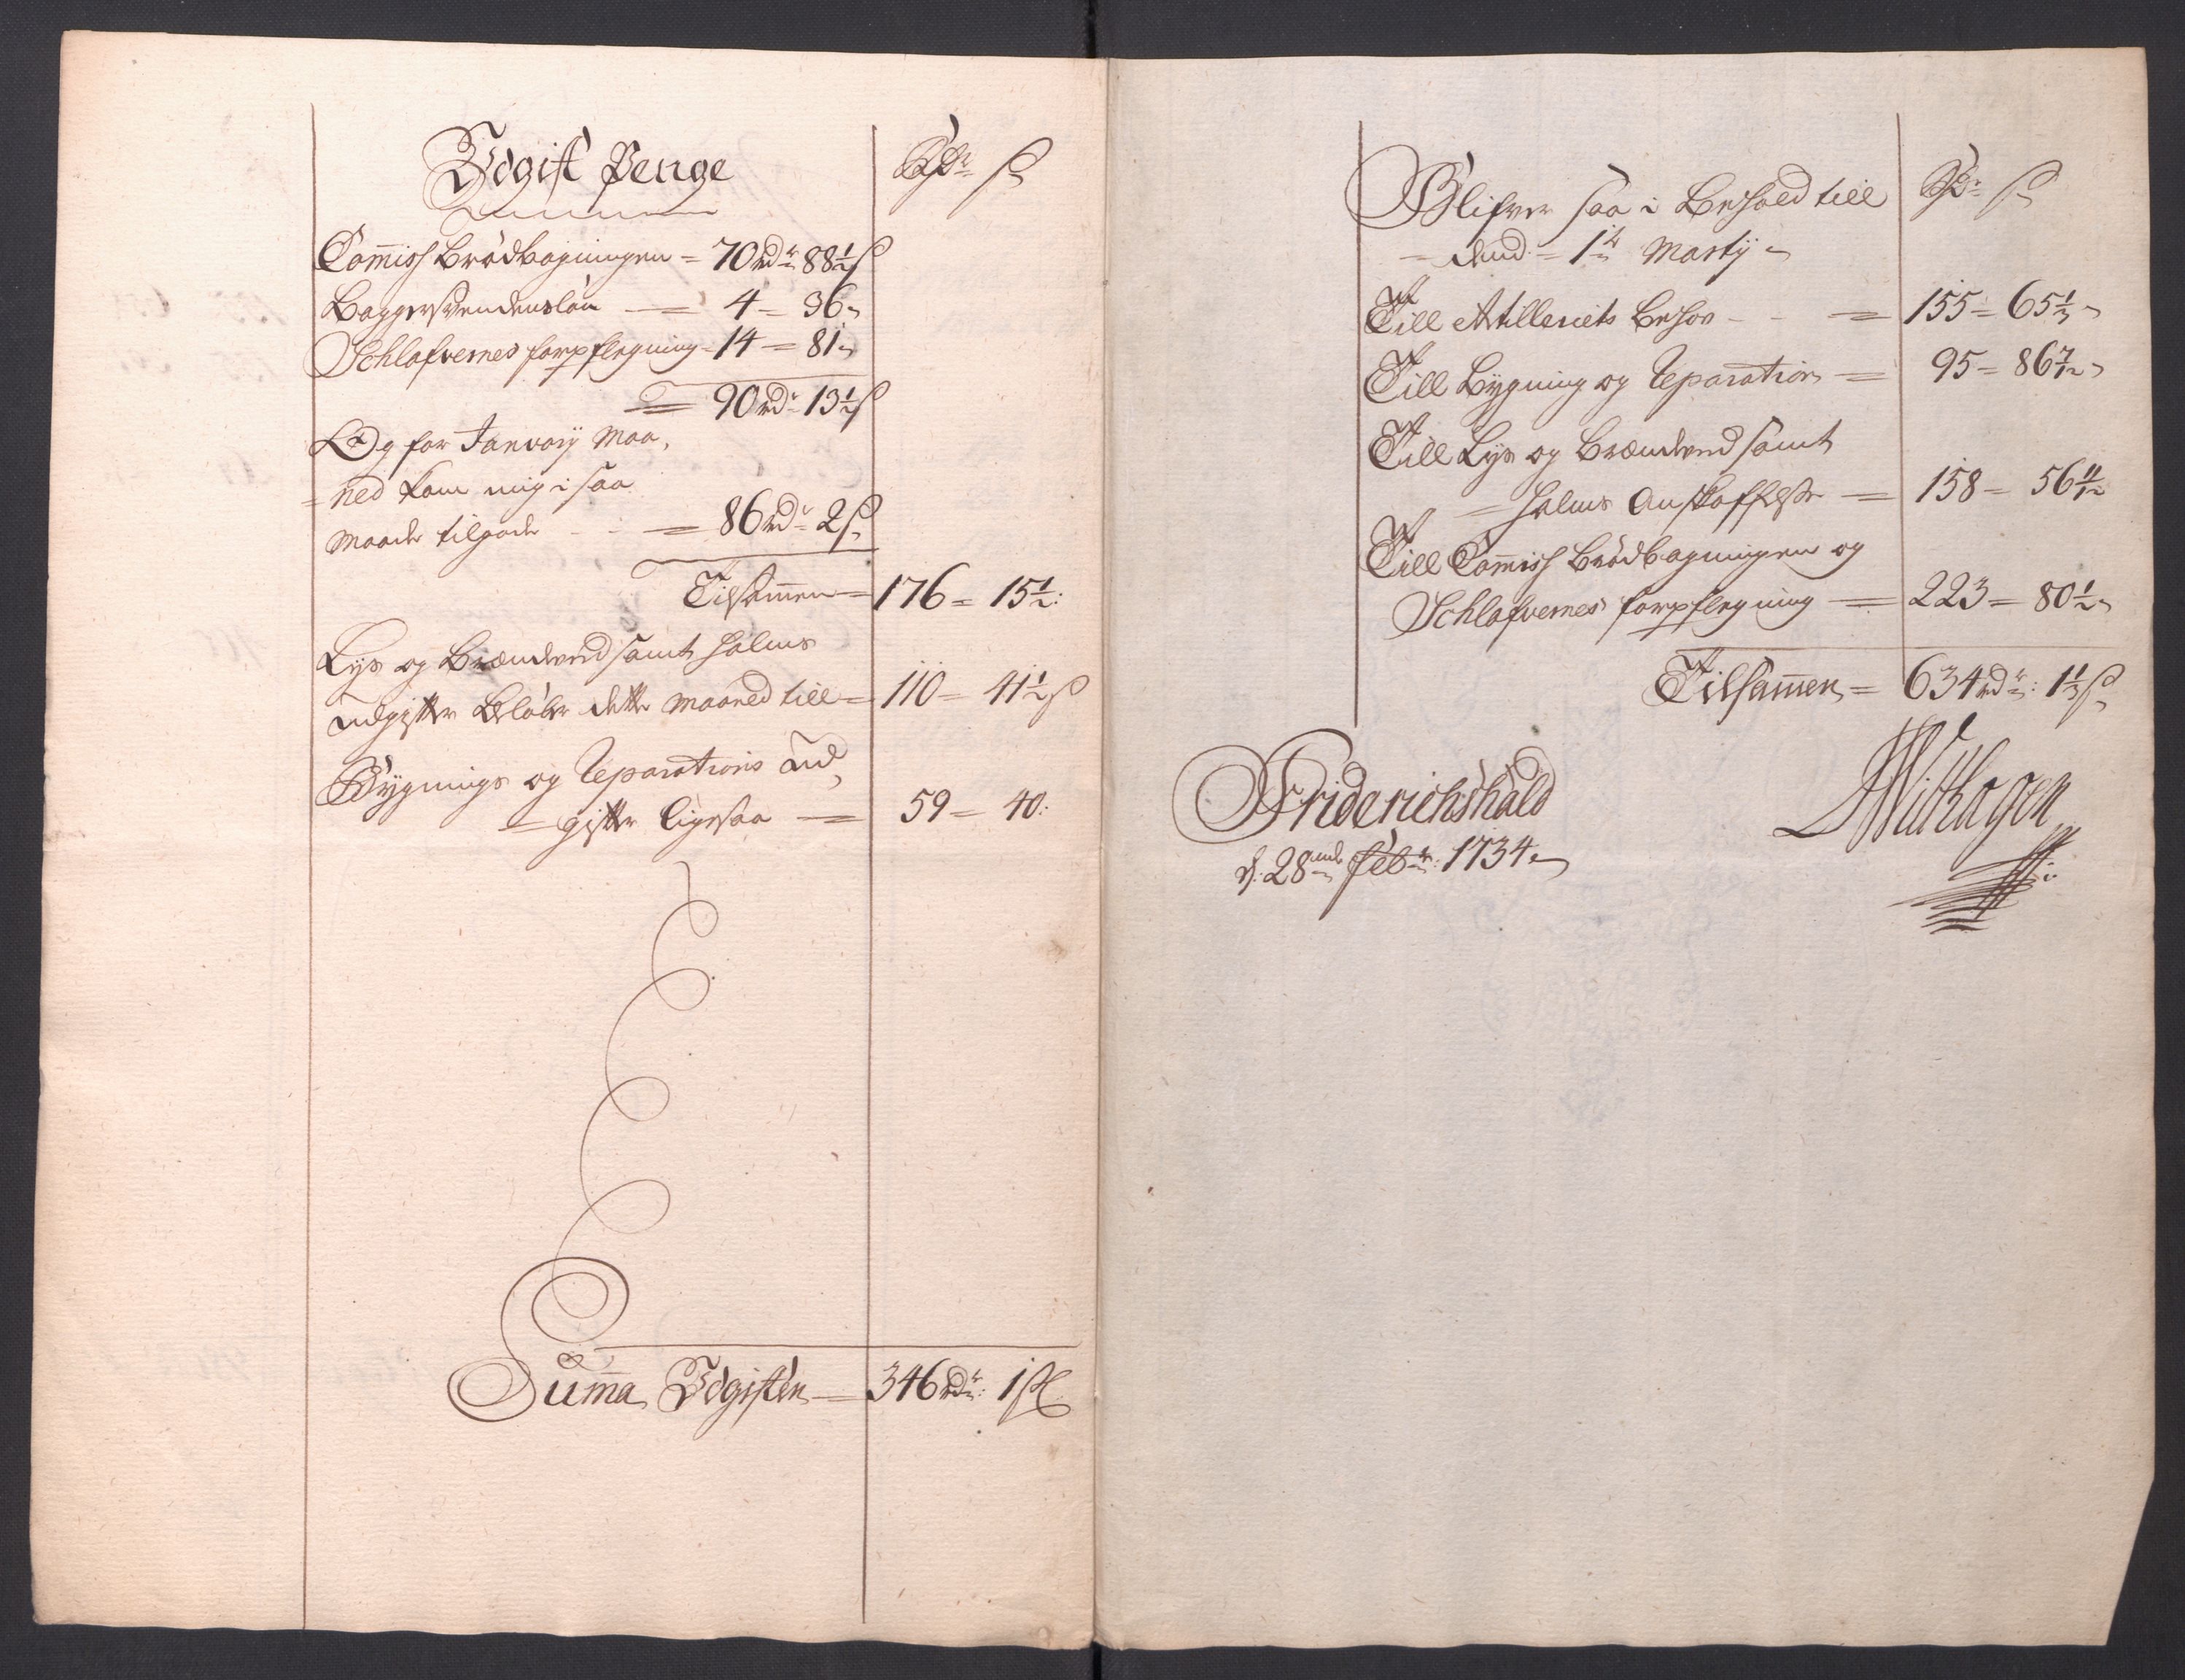 Udgift Penge
Rdr ß
Com̄iss Brødbagningen = 70 rdr 88½ ß
Baggersvendens løn = 4 = 36
Schlafvernes forpflegning = 14 = 81
= 90 rdr 13½ ß
Og for Janvarij Maa,
= ned kom mig i saa
Maade tilgode = 86 rdr 2 ß
Tilsam̄en = 176 = 15½:
Lys og Brændeved samt Halms
udgifter beløber dette Maaned till = 110 = 41½ ß
Bygnings og Reparations Ud,
= gifter ligesaa = 59 = 40:
Sum̄a Udgiften = 346 rdr: 1 ß
Blifver saa i Behold till
Rdr ß
= dend = 1te Martij =
Till Artilleriets Behov = 155 = 65⅓
Till Bygning og Reparation = 95 = 86 7/12
Till Lys og Brændeved samt
= Halms Anskaffelse = 158 = 56 11/12
Till Com̄iss Brødbagningen og
Schlafvernes forpflegning = 223 = 80½
Tilsam̄en = 634 rdr: 1⅓ ß
Friderichshald
d: 28nde Febr: 1734
Withagen